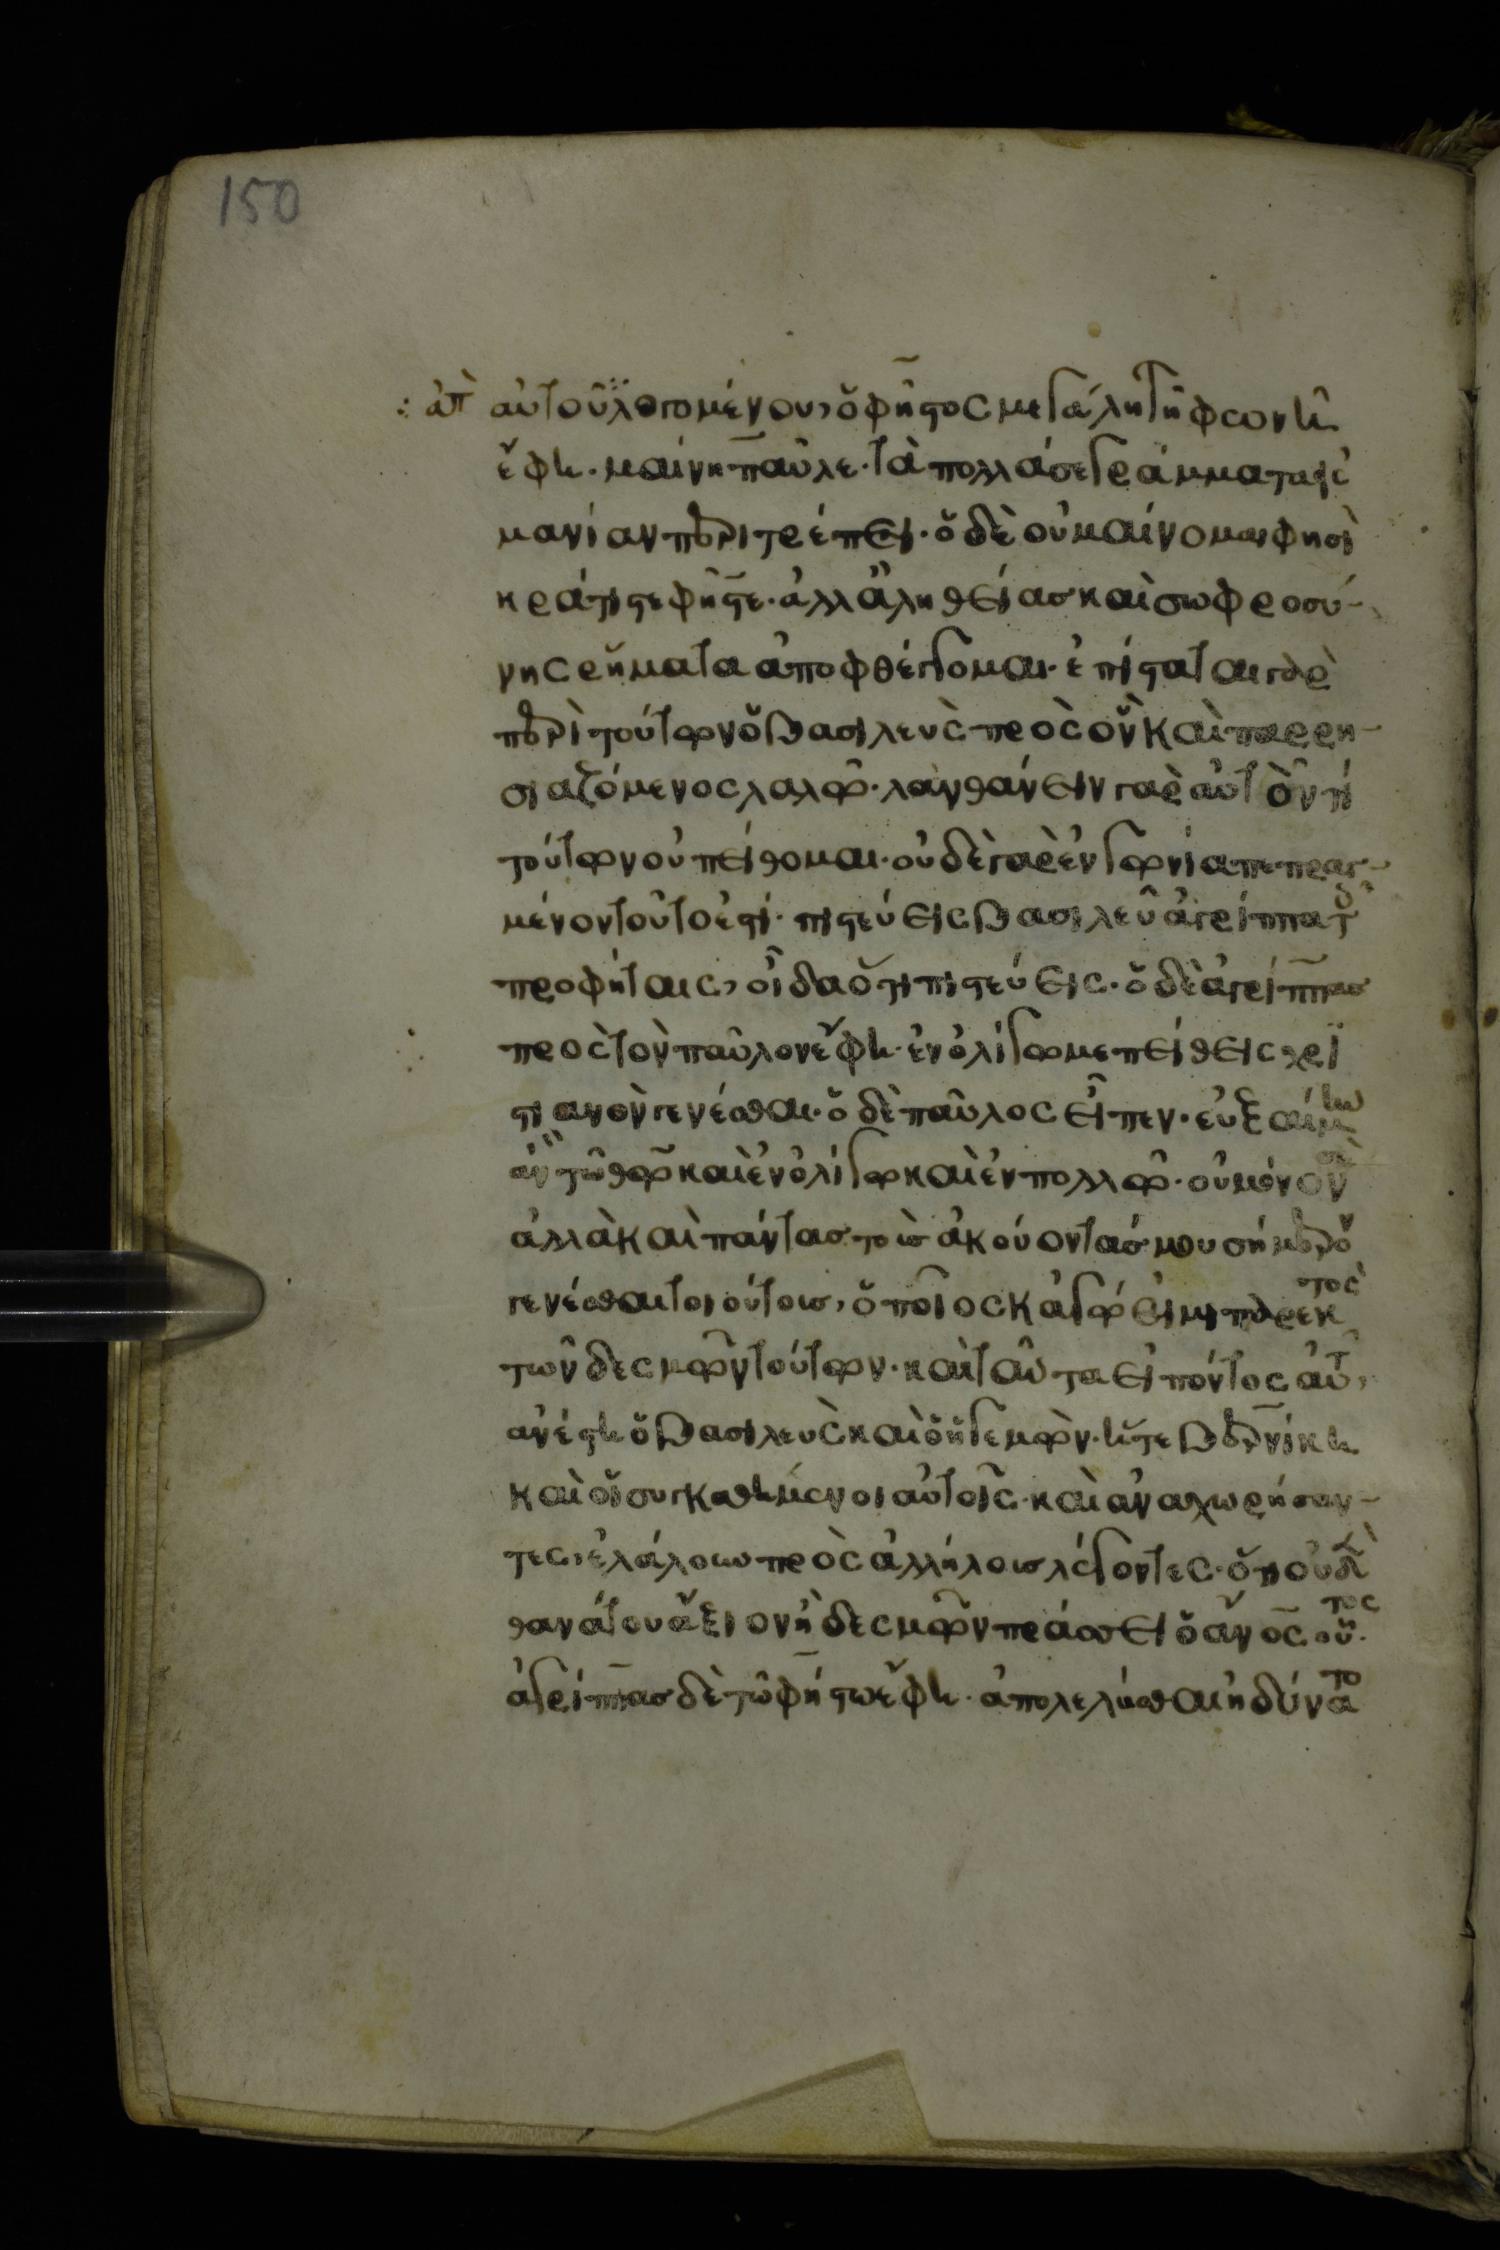 150
⁘ ἀπ αὐτοῦ λογομένου, ὁ φῆστος μεγάλη τῆ φωνῆ
ἔφη· μαίνη παῦλε· τὰ πολλά σε γράμματα εἰς
μανίαν περιτρέπει· ὁ δὲ οὐ μαίνομαι φησὶ
κράτιστε φῆστε· ἀλλ ἀληθείας καὶ σωφροσύ-
νης ρήματα ἀποφθέγγομαι· ἐπίσταται γὰρ
περὶ τούτων ὁ βασιλεὺς πρὸς ὃν καὶ παρρη-
σιαζόμενος λαλῶ· λανθάνειν γὰρ αὐτὸν τί
τούτων οὐ πείθομαι· οὐδὲ γὰρ ἐν γωνία πεπραγ-
μένον τοῦτο ἐστί· πιστεύεις βασιλεῦ ἀγρίππα τοῖς
προφήταις, οἶδα ὅτι πιστεύεις· ὁ δὲ ἀγρίππας
πρὸς τὸν παῦλον ἔφη· ἐν ὀλίγω με πείθεις χρι
στιανὸν γενέσθαι· ὁ δὲ παῦλος εἶπεν· εὐξαίμην
ἂν τῶ θεῶ καὶ ἐν ὀλίγω καὶ ἐν πολλῶ· οὐ μόνον σὲ
ἀλλὰ καὶ πάντας τοὺς ἀκούοντάς μου σήμερον
γενέσθαι τοιούτους, ὁποῖος κἀγώ εἰμι παρεκτὸς
τῶν δεσμῶν τούτων· καὶ ταῦτα εἰπόντος αὐτοῦ,
ἀνέστη ὁ βασιλεὺς καὶ ὁ ἡγεμὼν· ἥ τε βερνίκη
καὶ οἱ συγκαθήμενοι αὐτοῖς· καὶ ἀναχωρήσαν-
τες, ἐλάλουν πρὸς ἀλλήλους λέγοντες· ὅτι οὐδὲν
θανάτου ἄξιον ἢ δεσμῶν πράσσει ὁ ἄνος οὗτος·
ἀγρίππας δὲ τῶ φήστω ἔφη· ἀπολελύσθαι ἠδύνατο